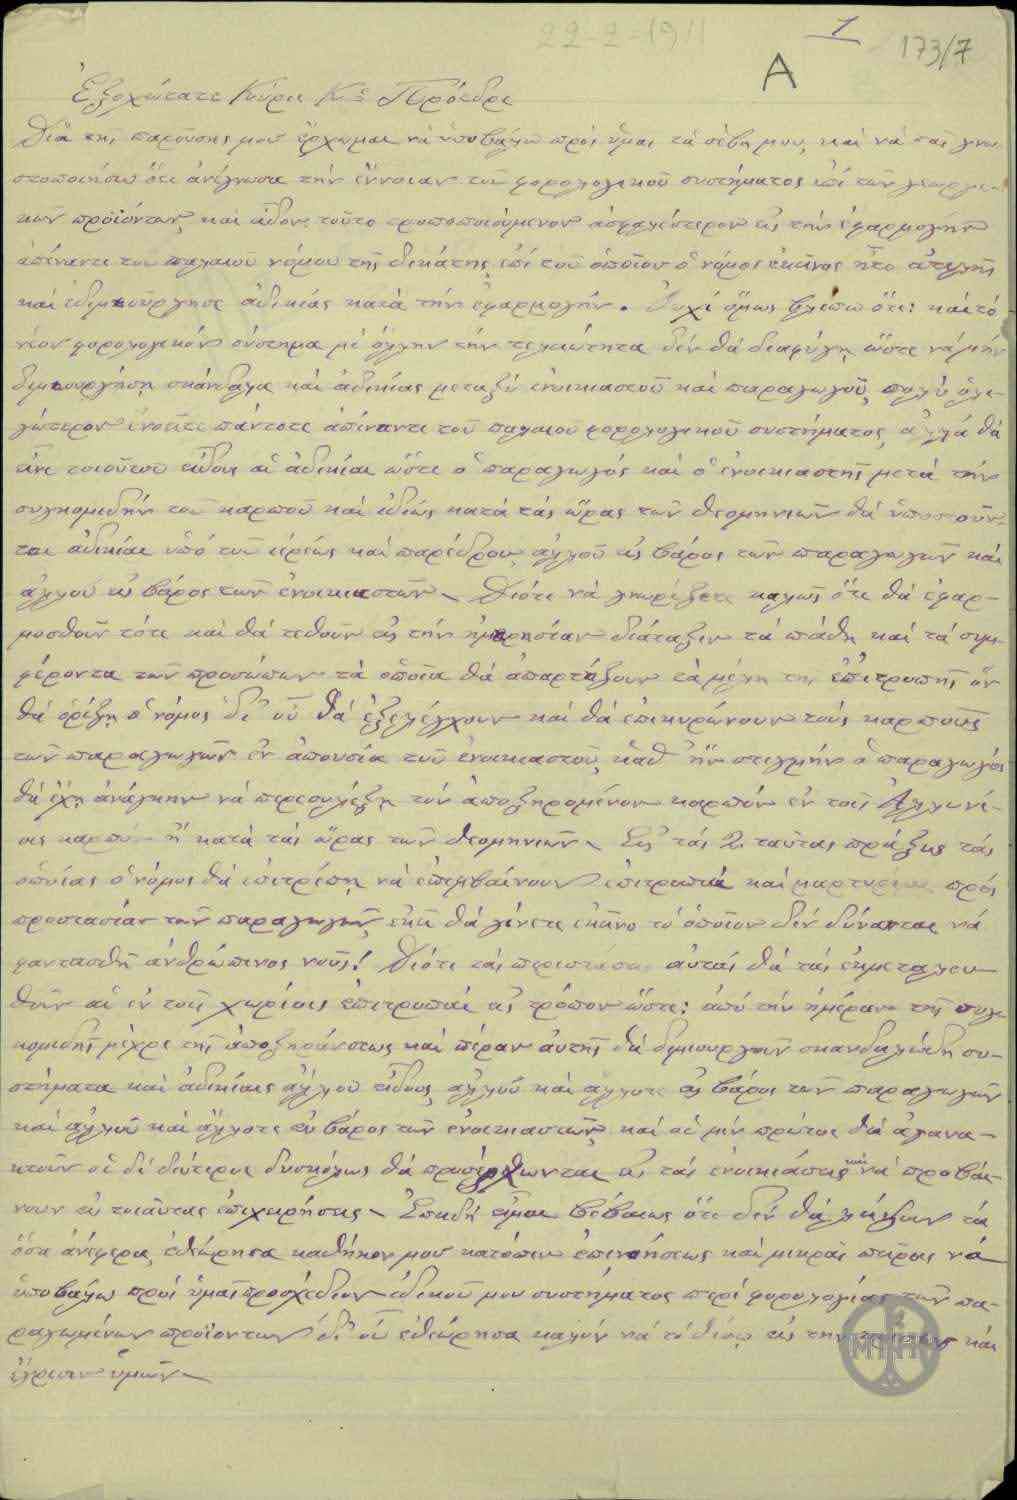 22-2-1911
1
173/7
A
Ἐξοχώτατε Κύριε Κε Πρόεδρε
Διὰ τῆς παρούσης μου ἔρχομαι νὰ ὑποβάλω πρὸς ὑμᾶς τὰ σέβη μου, καὶ νὰ σᾶς γνω-
στοποιήσω ὅτι ἀνέγνωσα τὴν ἔννοιαν τοῦ φορολογικοῦ συστήματος ἐπὶ τῶν γεωργι-
κῶν προϊόντων, καὶ εἶδον τοῦτο τροποποιούμενον ἀσφαλέστερον εἰς τὴν ἐφαρμογὴν
ἀπέναντι τοῦ παλαιοῦ νόμου τῆς δεκάτης ἐπὶ τοῦ ὁποίου ὁ νόμος ἐκεῖνος ἦτο ἀτελὴς
καὶ ἐδημιούργησε ἀδικίας κατὰ τὴν ἐφαρμογήν. Οὐχὶ ὅμως βλέπω ὅτι: καὶ τὸ
νέον φορολογικὸν σύστημα μὲ ὅλην τὴν τελειότητα δὲν θὰ διαφύγῃ ὥστε νὰ μὴν
δημιουργήσῃ σκάνδαλα καὶ ἀδικίας μεταξὺ ἐνοικιαστοῦ καὶ παραγωγοῦ, πολὺ ὀλι-
γώτερον ἐννοεῖτε πάντοτε ἀπέναντι τοῦ παλαιοῦ φορολογικοῦ συστήματος, ἀλλὰ θὰ
εἶνε τοιούτου εἴδους αἱ ἀδικίαι ὥστε ὁ παραγωγὸς καὶ ὁ ἐνοικιαστὴς μετὰ τὴν
συγκομιδὴν τοῦ καρποῦ καὶ ἰδίως κατὰ τὰς ὥρας τῶν θεομηνιῶν θὰ ὑποστοῦν
τοι ἀδικίαι ὑπὸ τοῦ ἱερέως καὶ παρέδρου, ἀλλοῦ εἰς βάρος τῶν παραγωγῶν καὶ
ἀλλοῦ εἰς βάρος τῶν ἐνοικιαστῶν. Διότι νὰ γνωρίζετε καλῶς ὅτι θὰ ἐφαρ-
μοσθοῦν τότε καὶ θὰ τεθοῦν εἰς τὴν ἡμερησίαν διάταξιν τὰ πάθη καὶ τὰ συμ-
φέροντα τῶν προσώπων τὰ ὁποῖα θὰ ἀπαρτίζουν τὰ μέλη τῆς ἐπιτροπῆς ἣν
θὰ ὁρίζῃ ὁ νόμος δι' οὗ θὰ ἐξελέγχουν καὶ θὰ ἐπικυρώνουν τοὺς καρποὺς
τῶν παραγωγῶν ἐν ἀπουσίᾳ τοῦ ἐνοικιαστοῦ, καθ' ἣν στιγμὴν ὁ παραγωγὸς
θὰ ἔχῃ ἀνάγκην νὰ περισυλέξῃ τὸν ἀποξηραμένον καρπὸν ἐν τοῖς Ἁλωνί-
οις ἢ κατὰ τὰς ὥρας τῶν θεομηνιῶν. Εἰς τὰς 2 ταύτας πράξεις τὰς
ὁποίας ὁ νόμος θὰ ἐπιτρέπῃ νὰ ἐπεμβαίνουν ἐπιτροπαὶ καὶ πρὸς
προστασίαν τῶν παραγωγῶν, ἐκεῖ θὰ γίνεται ἐκεῖνο τὸ ὁποῖον δὲν δύναται νὰ
φαντασθῇ ἀνθρώπινος νοῦς! Διότι τὰς περιστάσεις αὐτὰς θὰ τὰς ἐκμεταλευ-
θοῦν αἱ ἐν τοῖς χωρίοις ἐπιτροπαὶ εἰς τρόπον ὥστε: ἀπὸ τὴν ἡμέραν τῆς συγ-
κομιδῆς μέχρι τῆς ἀποξηράνσεως καὶ πέραν αὐτῆς θὰ δημιουργοῦν σκανδαλώδη συ-
στήματα καὶ ἀδικίαις ἀλλοῦ εἴδους, ἀλλοῦ καὶ ἄλλοτε εἰς βάρος τῶν παραγωγῶν
καὶ ἀλλοῦ καὶ ἄλλοτε εἰς βάρος τῶν ἐνοικιαστῶν, καὶ οἱ μὲν πρῶτοι θὰ ἀγανα-
κτοῦν οἱ δὲ δεύτεροι δυσκόλως θὰ προσέρχωνται εἰς τὰς ἐνοικιάσεις καὶ νὰ προβαί-
νουν εἰς τοιαύτας ἐπιχειρήσεις. Ἐπειδὴ εἶμαι βέβαιος ὅτι δὲν θὰ λείψουν τὰ
ὅσα ἀνέφερα, ἐθεώρησα καθῆκον μου κατόπιν ἐπινοήσεως καὶ μικρᾶς πείρας νὰ
ὑποβάλω πρὸς ὑμᾶς προσχέδιον ἰδικοῦ μου συστήματος περὶ φορολογίας τῶν πα-
ραγωμένων προϊόντων δι' οὗ ἐθεώρησα καλὸν νὰ τὸ θέσω εἰς τὴν καὶ
ἔγκρισιν ὑμῶν